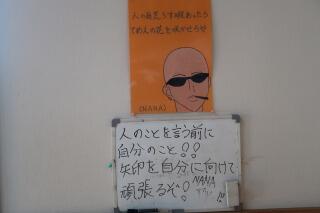 人の見荒らす暇あったら
てめえの花を咲かせらぜ
(NANA)
人のことを言う前に
自分のこと!!
矢印を自分に向けて
頑張るぞ!
NANA